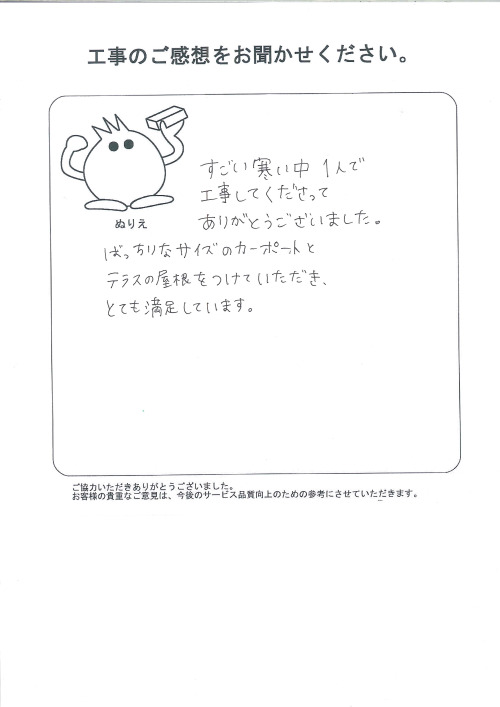 工事のご感想をお聞かせください。
ぬりえ
すごい寒い中 1人で
工事してくださって
ありがとうございました。
ばっちりなサイズのカーポートと
テラスの屋根をつけていただき、
とても満足しています。
ご協力いただきありがとうございました。
お客様の貴重なご意見は、今後のサービス品質向上のための参考にさせていただきます。